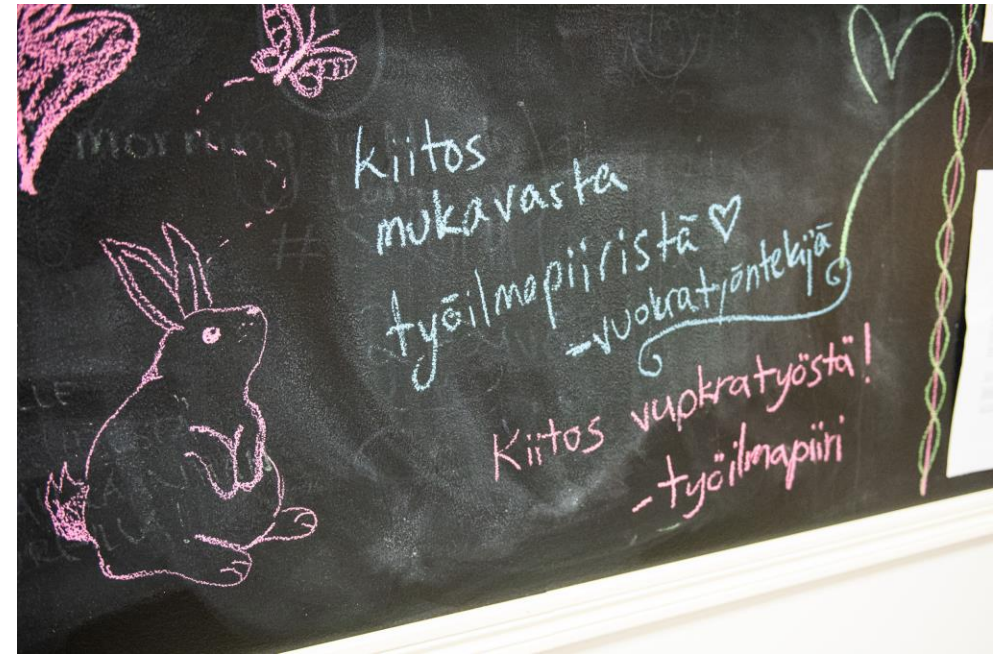 kiitos
mukavasta
työilmapiiristä ♡
-vuokratyöntekijä
Kiitos vuokratyöstä!
-työilmapiiri
morning
#